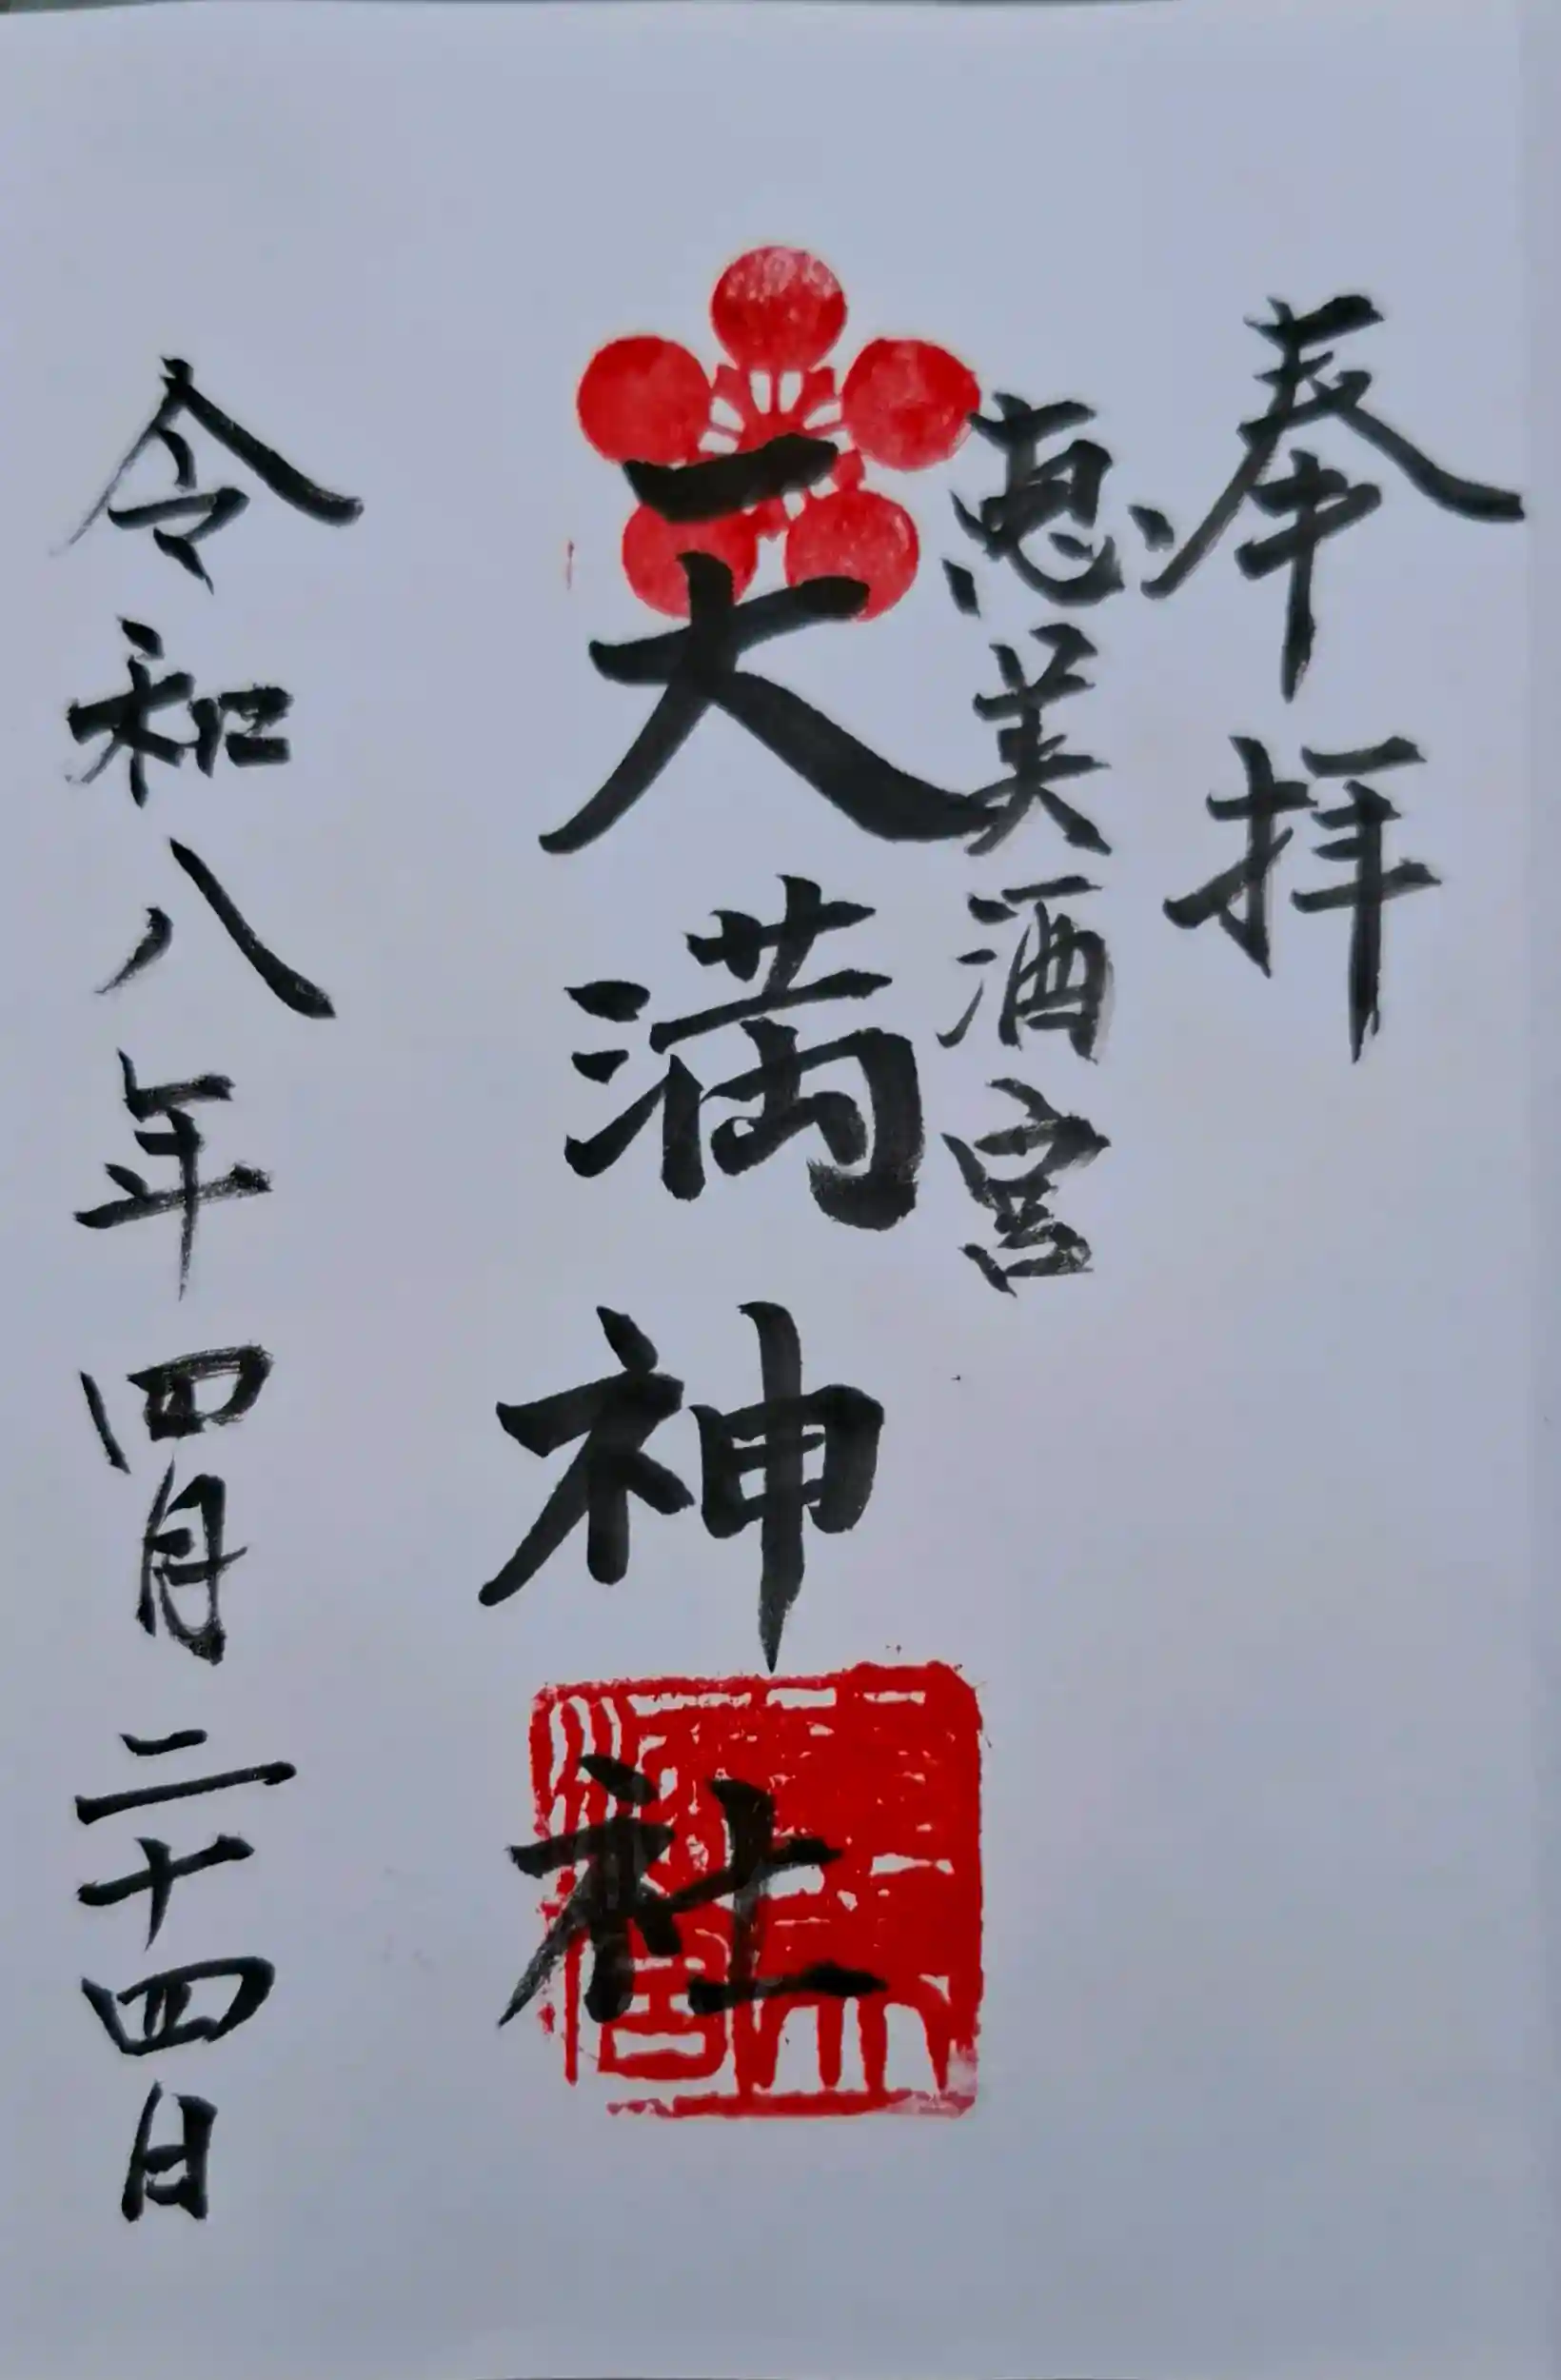 奉拝
恵美酒宮
天満神社
令和八年四月二十四日